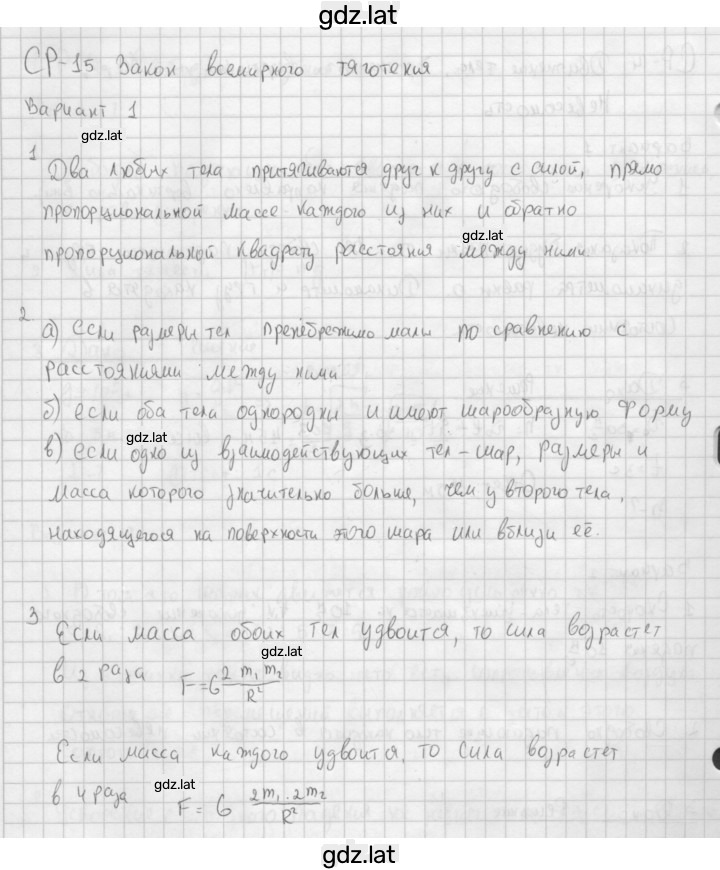 gdz.lat
СР-15 Закон всемирного тяготения
Вариант 1
gdz.lat
1 Два любых тела притягиваются друг к другу с силой, прямо
пропорциональной массе каждого из них и обратно
gdz.lat
пропорциональной квадрату расстояния между ними
2
а) если размеры тел пренебрежимо малы по сравнению с
расстояниями между ними
б) если оба тела однородны и имеют шарообразную форму
gdz.lat
в) если одно из взаимодействующих тел - шар, размеры и
масса которого значительно больше, чем у второго тела,
находящегося на поверхности этого шара или вблизи её.
3
Если масса обоих тел удвоится, то сила возрастет
gdz.lat
в 2 раза F = G 2 m₁ m₂ / R²
Если масса каждого удвоится, то сила возрастет
gdz.lat
в 4 раза F = G 2m₁ . 2m₂ / R²
gdz.lat